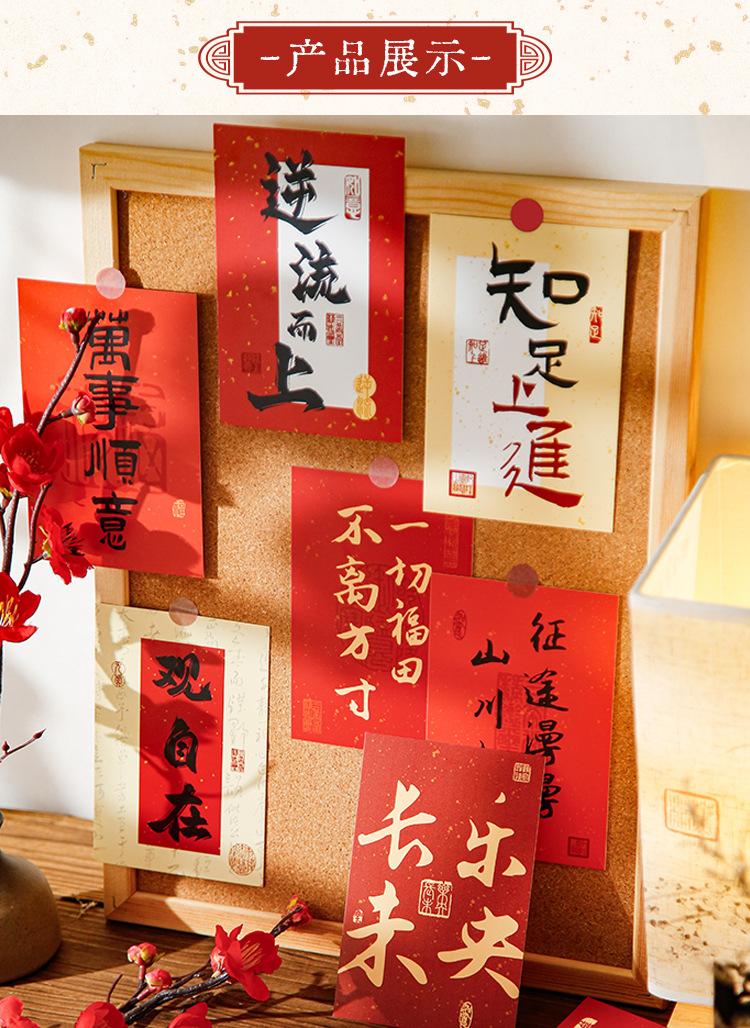 -产品展示-
逆流而上
知足上進
知足
萬事順意
一切福田
不离方寸
征途漫漫
山川
观自在
长乐
未央